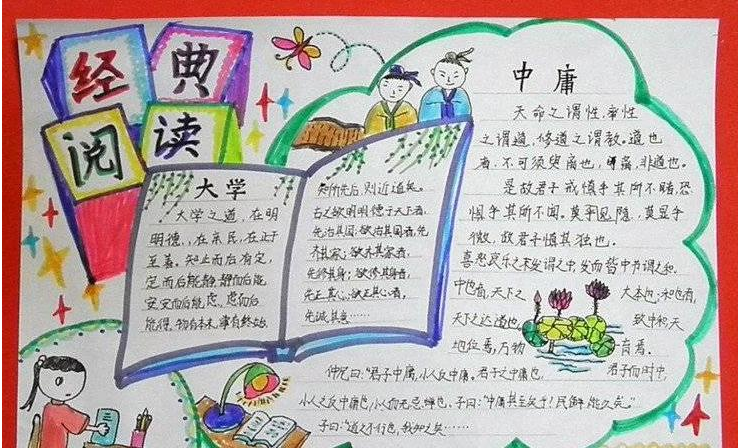 经典
阅读
大学
大学之道，在明
明德，在亲民，在止于
至善。知止而后有定，
定而后能静，静而后能
安，安而后能虑，虑而后
能得。物有本末，事有终始，
知所先后，则近道矣。
古之欲明明德于天下者，
先治其国；欲治其国者，先
齐其家；欲齐其家者，
先修其身；欲修其身者，
先正其心；欲正其心者，
先诚其意……
中庸
天命之谓性，率性
之谓道，修道之谓教。道也
者，不可须臾离也，可离，非道也。
是故君子戒慎乎其所不睹，恐
惧乎其所不闻。莫乎见隐，莫显乎
微，故君子慎其独也。
喜怒哀乐之未发谓之中，发而皆中节谓之和。
中也者，天下之大本也；和也者，
天下之达道也。致中和，天
地位焉，万物育焉。
仲尼曰：“君子中庸，小人反中庸。君子之中庸也，君子而时中，
小人之反中庸也，小人而无忌惮也。子曰：“中庸其至矣乎！民鲜能久矣。”
子曰：“道之不行也，我知之矣……